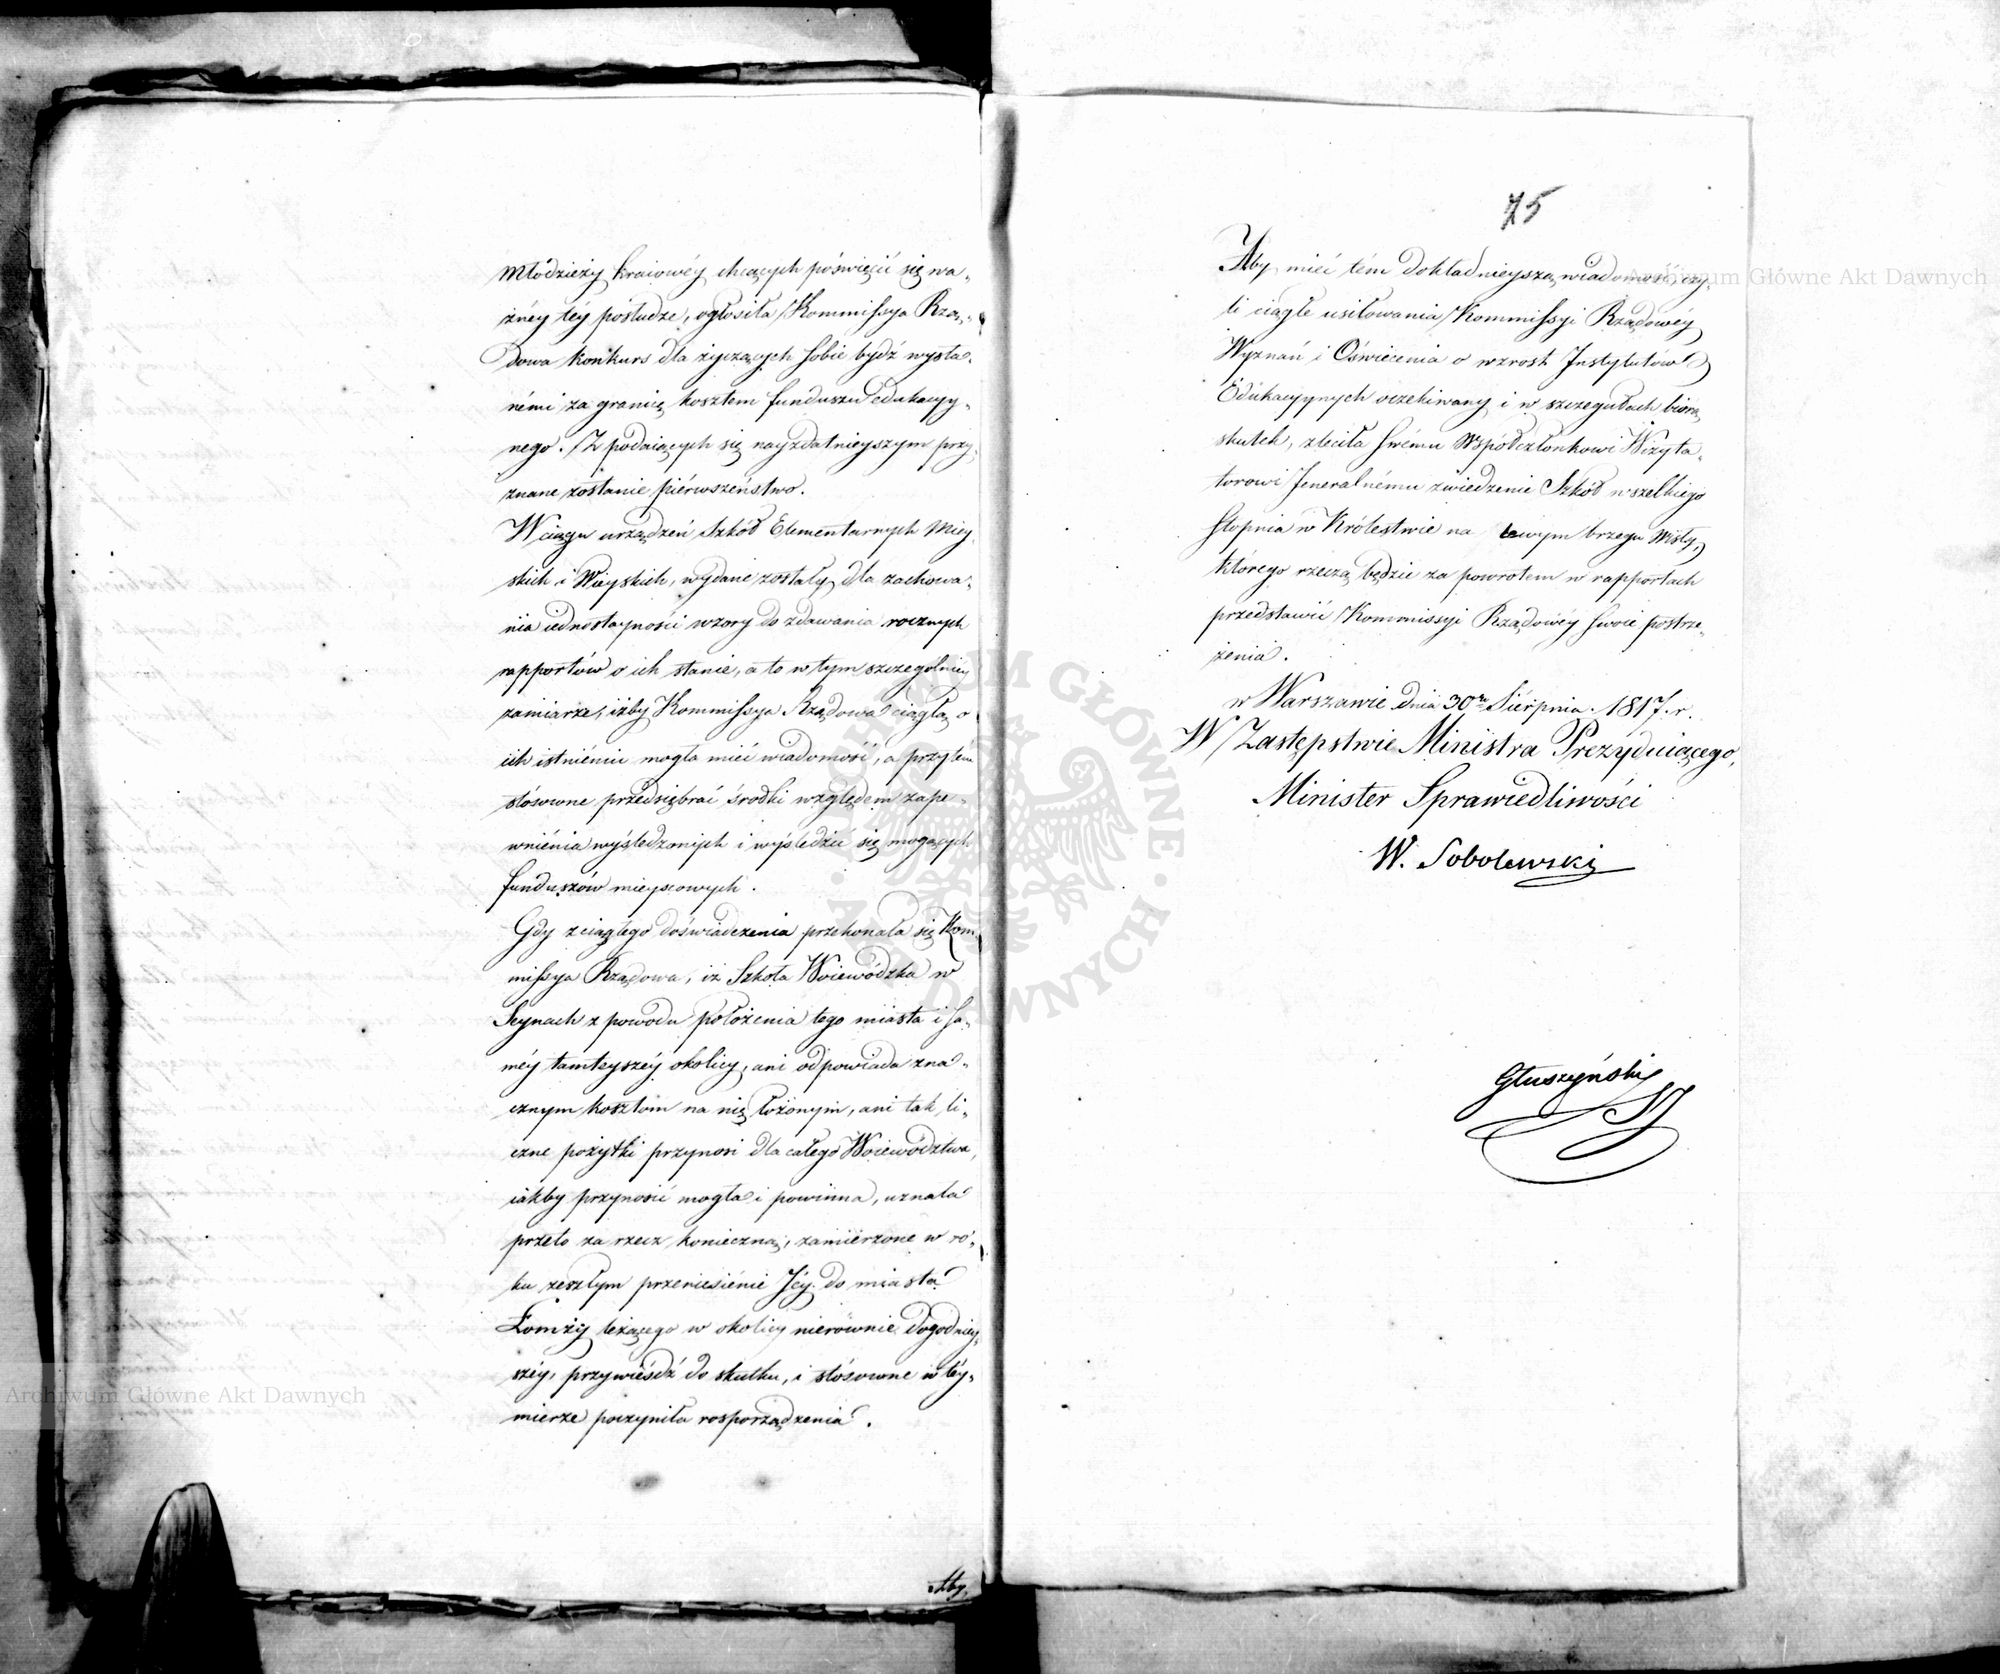 Młodzieży kraiowéy chcących poświęcić się wa-
żnéy téy posłudze, ogłosiła Kommissya Rzą-
dowa konkurs dla życzących sobie bydź wysła-
némi za granicę kosztem funduszu edukacyy-
nego. Z podaiących się nayzdatnieyszym przy-
znane zostanie piérwszeństwo.
W ciągu urządzeń Szkół Elementarnych Miey-
skich i Wieyskich, wydane zostały dla zachowa-
nia iednostayności wzory do zdawania rocznych
rapportów o ich stanie, a to w tym szczególniey
zamiarze, iżby Kommissya Rządowa ciągłą o
ich istniéniu mogła mieć wiadomość, a przytém
stósowne przedsiębrać środki względem zape-
wniénia wyśledzonych i wyśledzić się mogących
funduszów mieyscowych.
Gdy z ciągłego doświadczenia przekonała się Kom-
missya Rządowa, iż Szkoła Woiewódzka w
Seynach z powodu położenia tego miasta i sa-
méy tamteyszéy okolicy, ani odpowiada zna-
cznym kosztom na nię łożonym, ani tak li-
czne pożytki przynosi dla całego Woiewództwa,
iakby przynosić mogła i powinna, uznała
przeto za rzecz konieczną, zamierzone w ro-
ku zeszłym przeniesiénie Jéy do miasta
Łomży leżącego w okolicy nierównie dogodniey-
széy, przywieśdź do skutku, i stósowne w téy-
mierze poczyniła rosporządzenia.
Aby
75
Aby mieć tém dokładnieyszą wiadomość, czy-
li ciągłe usiłowania Kommissyi Rządowéy
Wyznań i Oświecenia o wzrost Instytutów
Edukacyynych oczekiwany i w szczegułach biorą
skutek, zleciła swému Współczłonkowi Wizyta-
torowi Jeneralnému zwiedzenie Szkół wszelkiego
stopnia w Królestwie na lewym brzegu Wisły,
którego rzeczą będzie za powrotem w rapportach
przedstawić Kommissyi Rządowéy swoie postrze-
żenia.
w Warszawie dnia 30go Sierpnia 1817. r.
W Zastępstwie Ministra Prezyduiącego,
Minister Sprawiedliwości
W. Sobolewski
Głuszyński
Archiwum Główne Akt Dawnych
Archiwum Główne Akt Dawnych
ARCHIWUM GŁÓWNE · AKT DAWNYCH ·